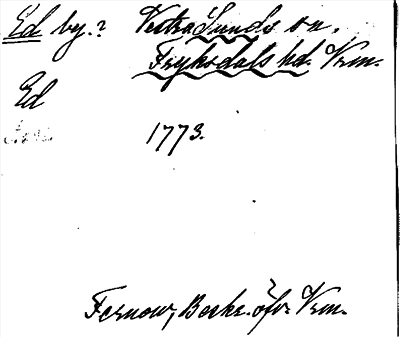 Ed by.? Västra Sunds sn.
Fryksdals hd. Vrm.
Ed
1773.
Fernow, Beskr. öfv. Vrm.